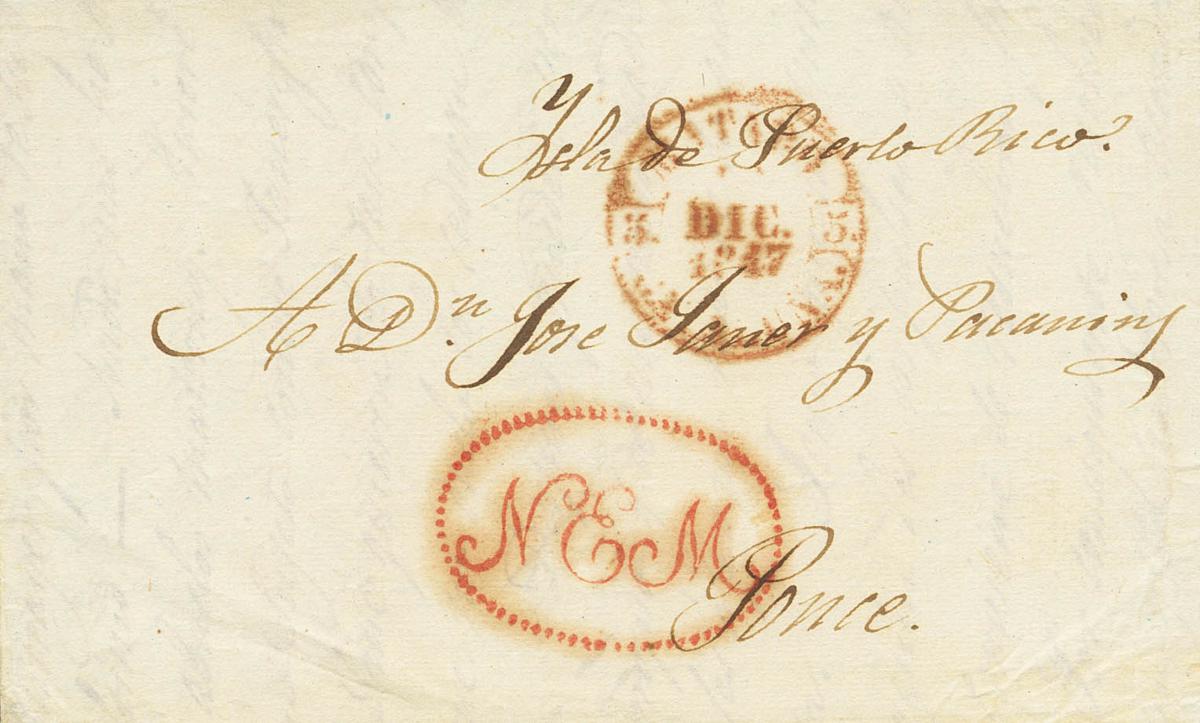 Ysla de Puerto Rico.
5. DIC. 5.
1847
A Dn. Jose Janer y Pacanins
NEM
Ponce.